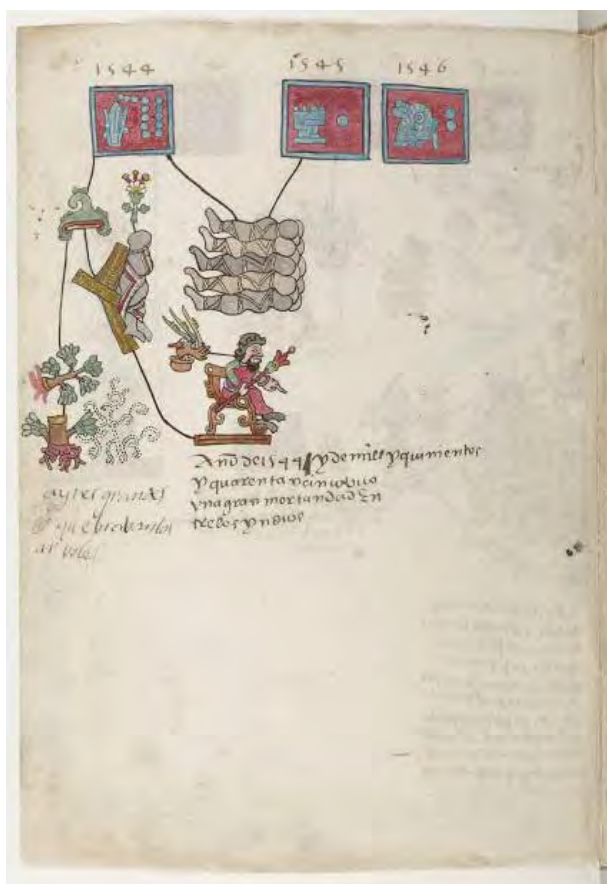 1544
1545
1546
Año de 1544 y de mill y quinientos
y quarenta y cinco vuo
vna gran mortandad en
tre los yndios
ayres grandes
que
arboles